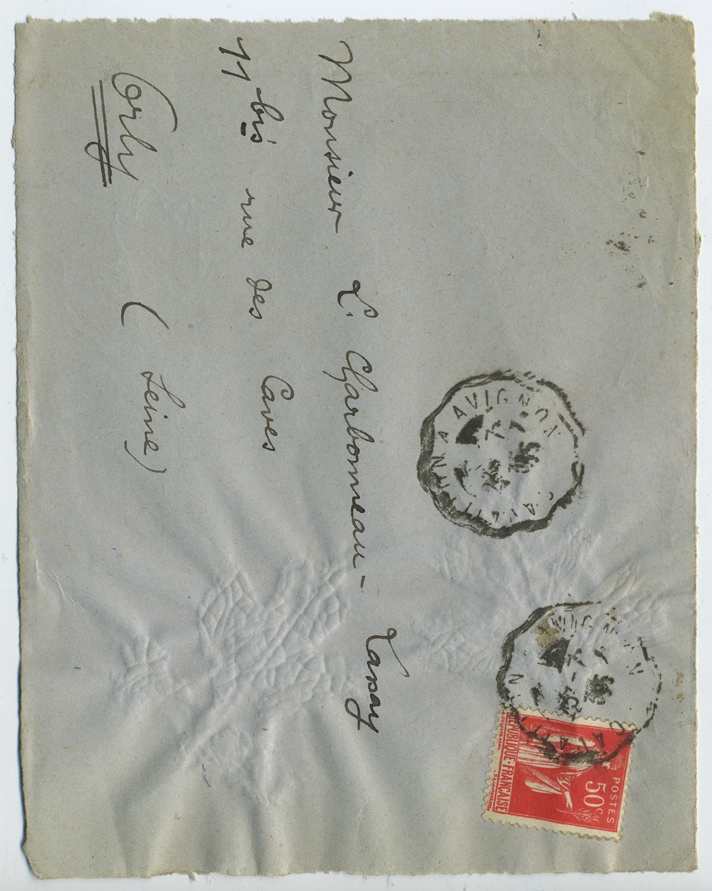 Monsieur L. Charbonneau-Lassay
11 bis rue des Caves
Orly (Seine)
AVIGNON
AVIGNON
POSTES
50c
REPUBLIQUE-FRANÇAISE